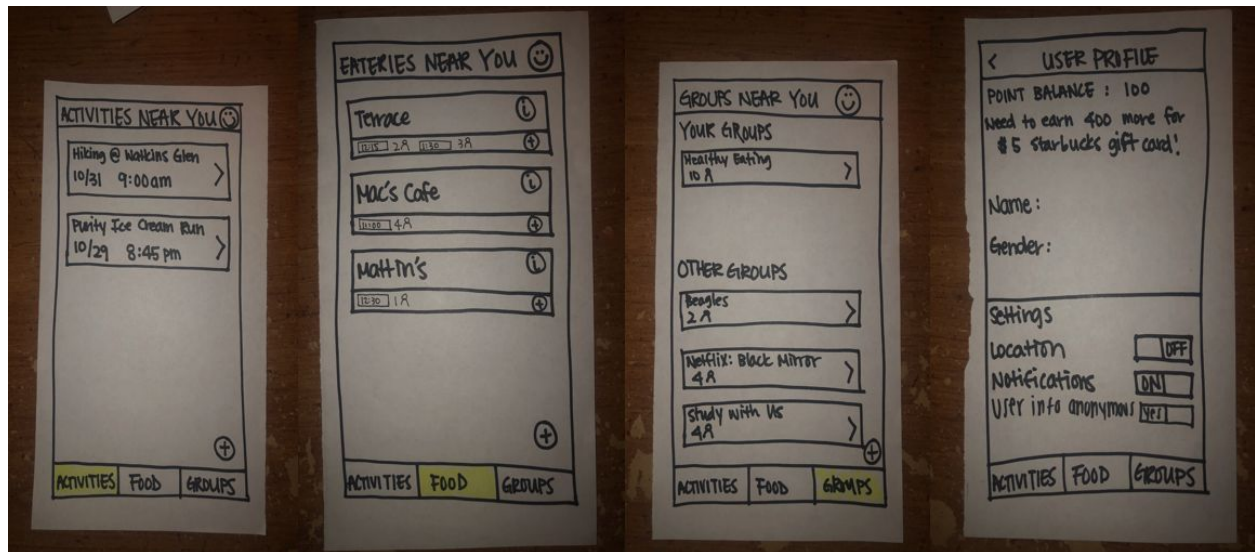 ACTIVITIES NEAR YOU
Hiking @ Watkins Glen
10/31 9:00am >
Purity Ice Cream Run
10/29 8:45pm >
+
ACTIVITIES FOOD GROUPS
EATERIES NEAR YOU
Terrace i
12:15 2 1:30 3 +
Mac's Cafe i
11:00 4 +
Mattin's i
12:30 1 +
+
ACTIVITIES FOOD GROUPS
GROUPS NEAR YOU
YOUR GROUPS
Healthy Eating
10 >
OTHER GROUPS
Beagles
2 >
Netflix: Black Mirror
4 >
Study With Us
4 >
+
ACTIVITIES FOOD GROUPS
< USER PROFILE
POINT BALANCE : 100
Need to earn 400 more for
$5 Starbucks gift card!
Name :
Gender :
Settings
Location OFF
Notifications ON
User info anonymous Yes
ACTIVITIES FOOD GROUPS